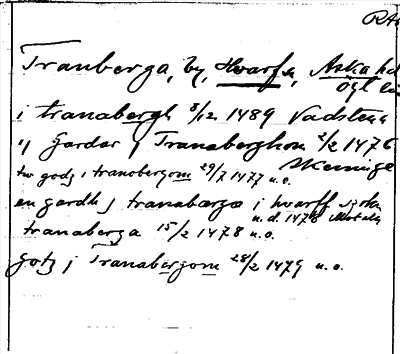 RA
Tranberga, by, Hvarfs, Aska hd
Ögl län
i tranabergh 8/12 1489 Vadstena
ij gardar j Tranaberghom 2/2 1476
Skeninge
tw godz i tranobergom 29/7 1477 u.o.
en gardh j tranabærgæ i hwarff sokn
u.d. 1478 Motala
tranaberga 15/2 1478 u.o.
gotz j Tranabergom 28/2 1479 u.o.